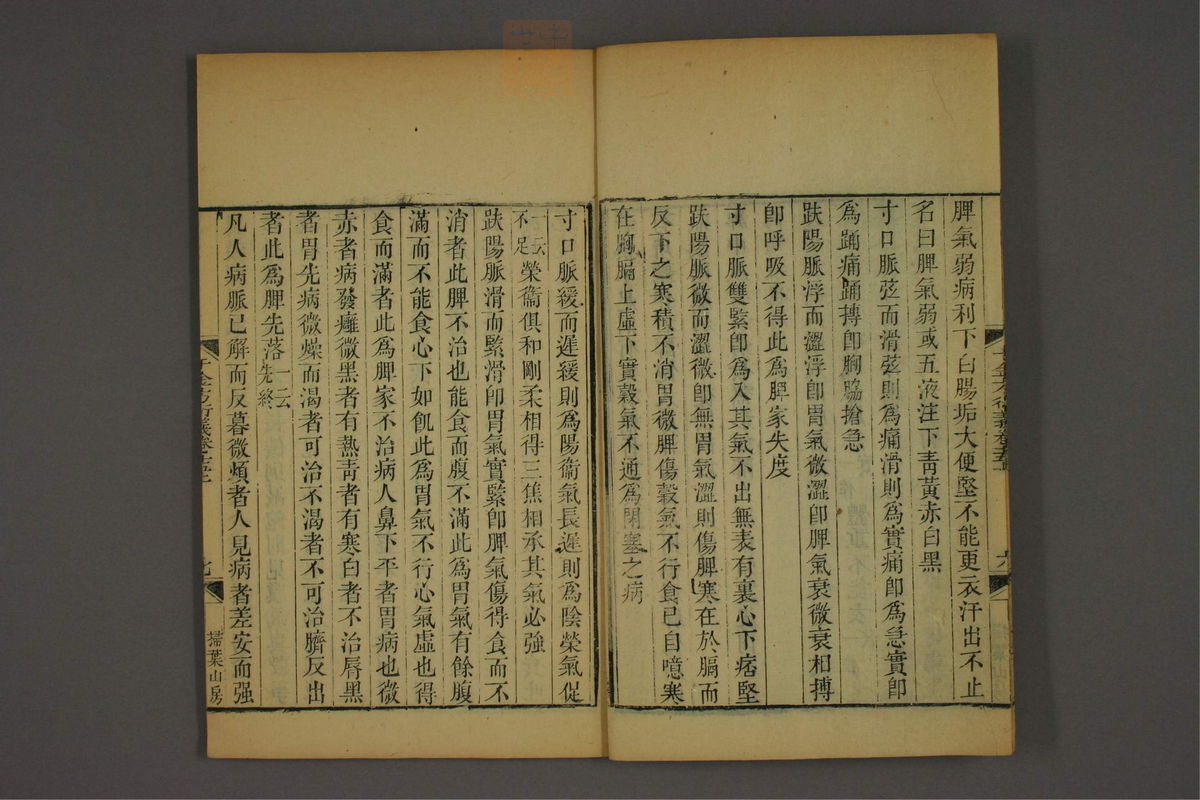 脾氣弱病利下白腸垢大便堅不能更衣汗出不止
名曰脾氣弱或五液注下青黃赤白黑
寸口脈弦而滑弦則為痛滑則為實痛卽為急實卽
為踊痛踊搏卽胸脇搶急
趺陽脈浮而澀浮卽胃氣微澀卽脾氣衰微衰相搏
卽呼吸不得此為脾家失度
寸口脈雙緊卽為入其氣不出無表有裏心下痞堅
趺陽脈微而澀微卽無胃氣澀則傷脾寒在於膈而
反下之寒積不消胃微脾傷穀氣不行食已自噫寒
在胸膈上虛下實穀氣不通為閉塞之病
寸口脈緩而遲緩則為陽衞氣長遲則為陰榮氣促
一云不足榮衞俱和剛柔相得三焦相承其氣必強
趺陽脈滑而緊滑卽胃氣實緊卽脾氣傷得食而不
消者此脾不治也能食而腹不滿此為胃氣有餘腹
滿而不能食心下如飢此為胃氣不行心氣虛也得
食而滿者此為脾家不治病人鼻下平者胃病也微
赤者病發癰微黑者有熱青者有寒白者不治唇黑
者胃先病微燥而渴者可治不渴者不可治臍反出
者此為脾先落一云先終
凡人病脈已解而反暮微煩者人見病者差安而強
掃葉山房